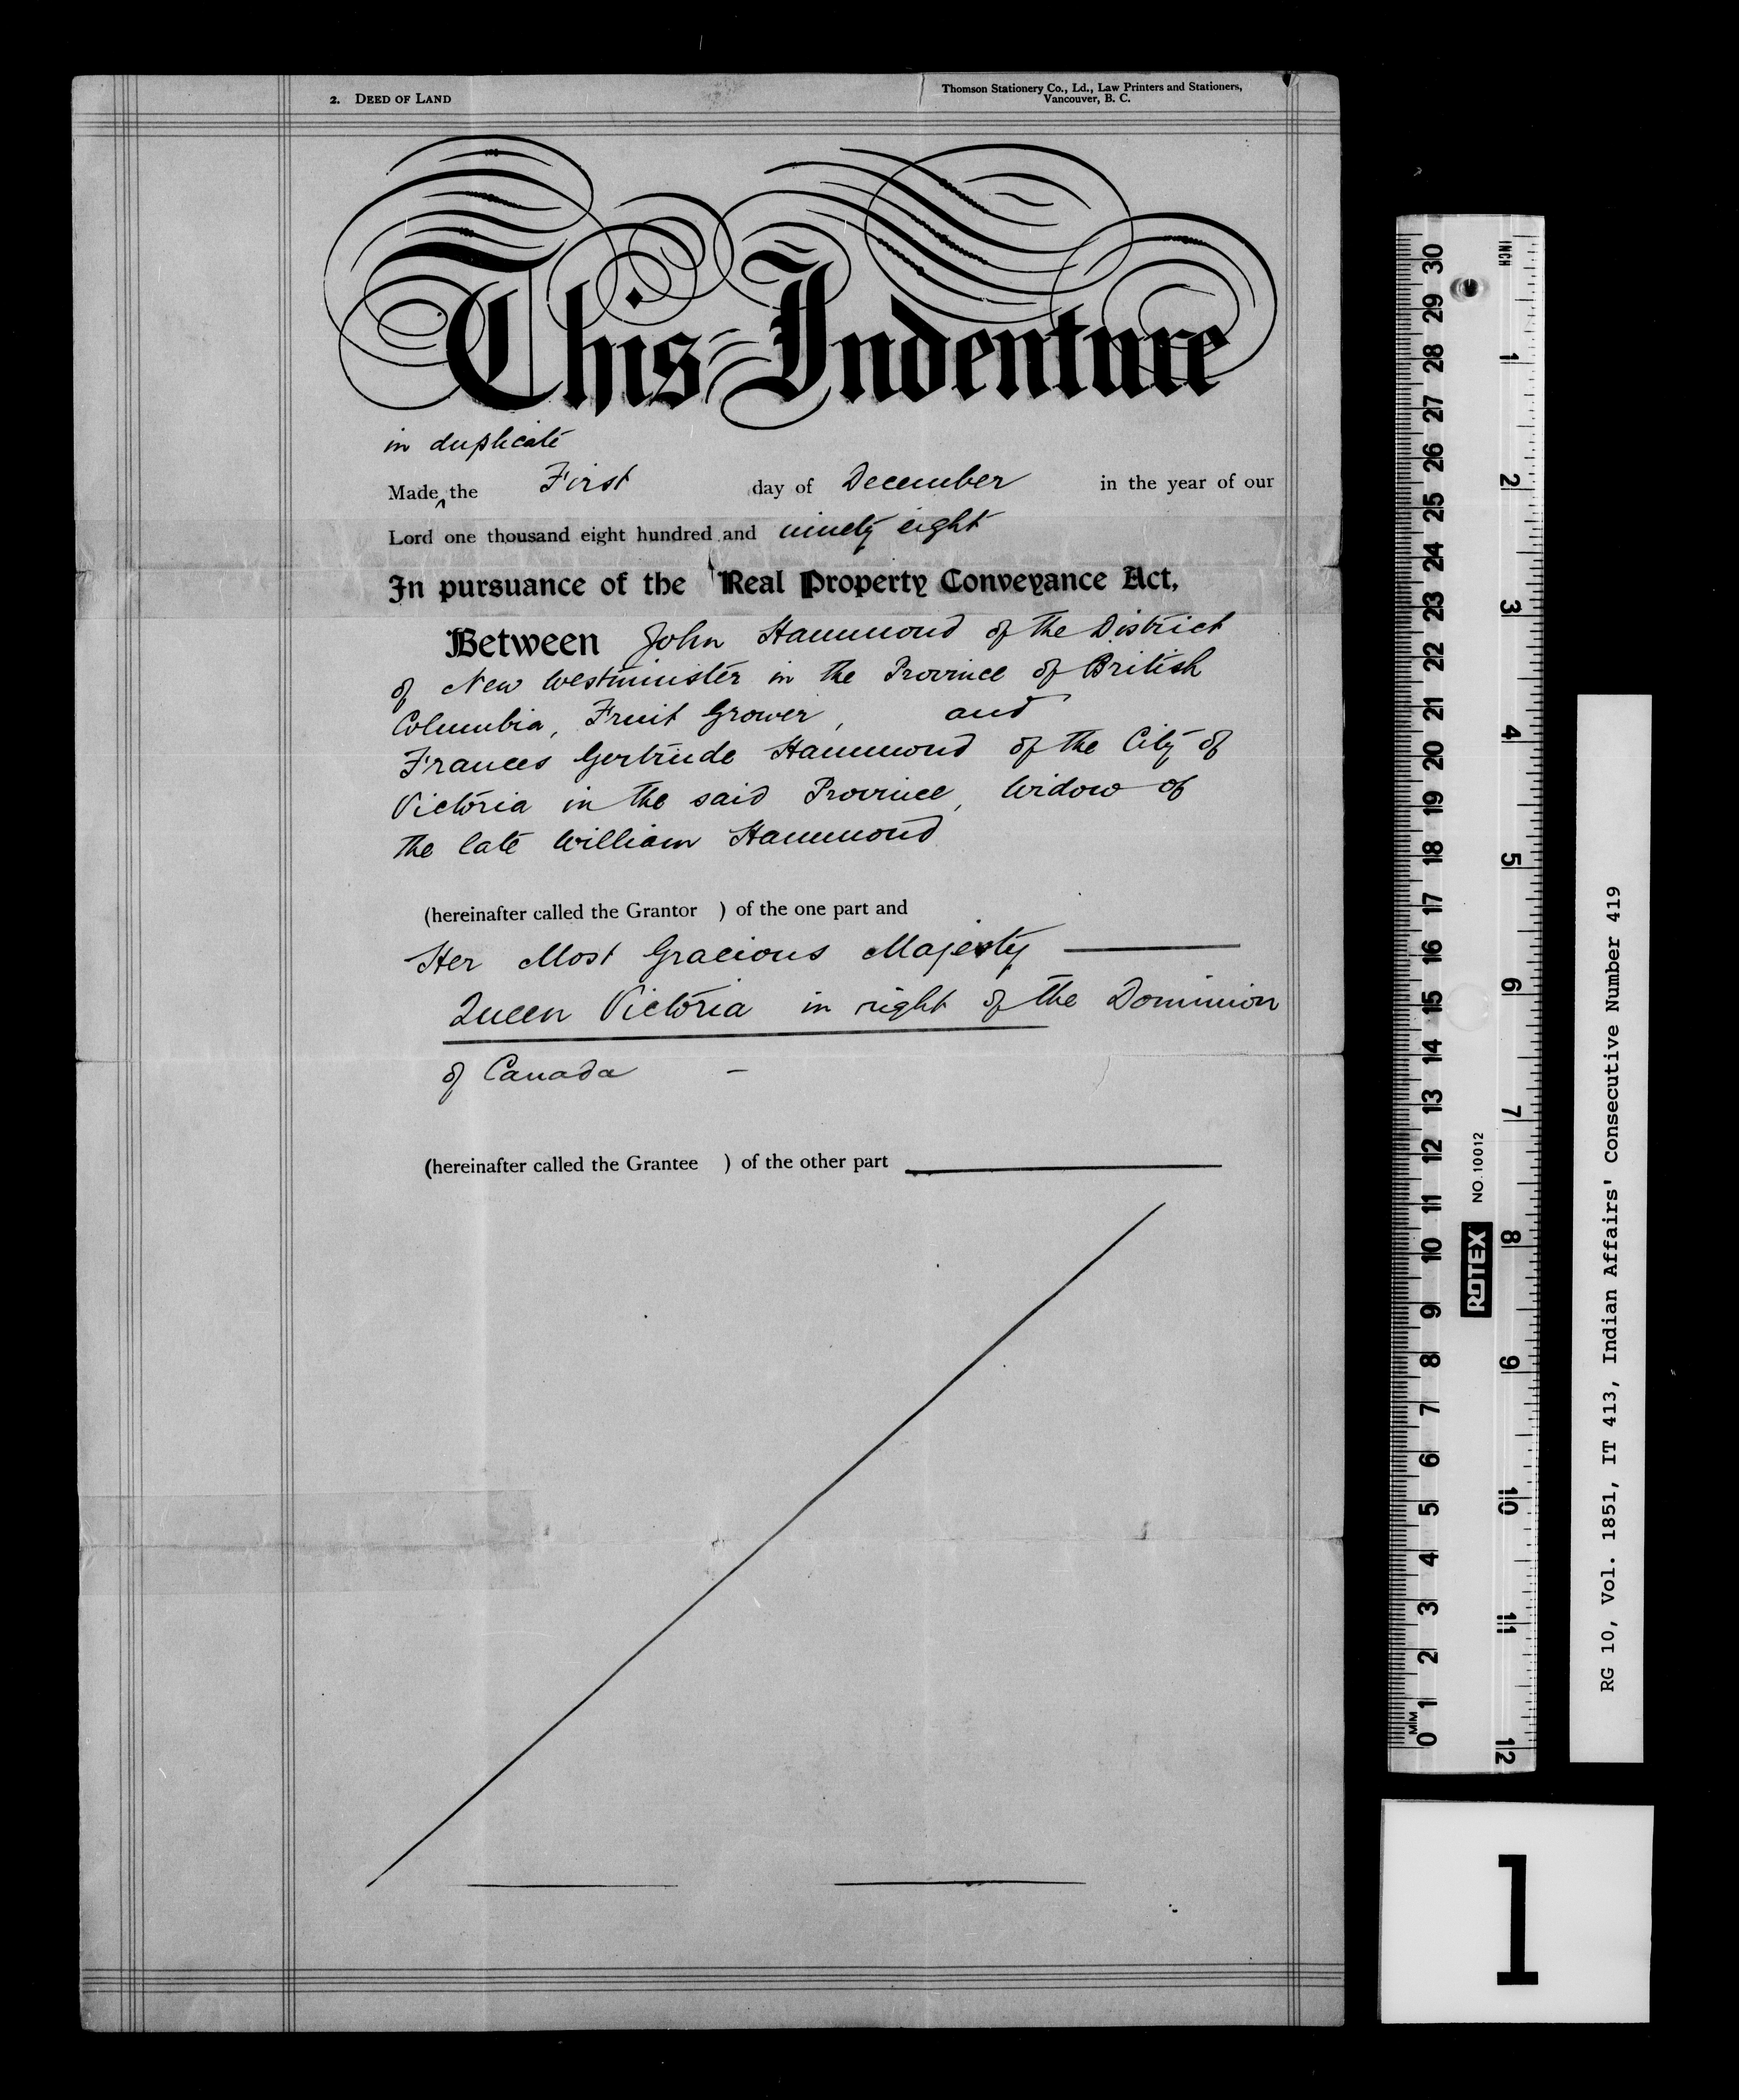 2. DEED OF LAND
Thomson Stationery Co., Ld., Law Printers and Stationers,
Vancouver, B. C.
This Indenture
in duplicate
Made ^ the First day of December in the year of our
Lord one thousand eight hundred and ninety eight
In pursuance of the Real Property Conveyance Act,
Between John Hammond of the District
of New Westminister in the Province of British
Columbia, Fruit Grower, and
Frances Gertrude Hammond of the City of
Victoria in the said Province, Widow of
the late William Hammond
(hereinafter called the Grantor ) of the one part and
Her Most Gracious Majesty
Queen Victoria in right of the Dominion
of Canada –
(hereinafter called the Grantee ) of the other part
INCH
1
2
3
4
5
6
7
8
9
10
11
12
30
29
28
27
26
25
24
23
22
21
20
19
18
17
16
15
14
13
12
11
10
9
8
7
6
5
4
3
2
1
0
MM
ROTEX NO. 10012
RG 10, Vol. 1851, IT 413, Indian Affairs' Consecutive Number 419
1